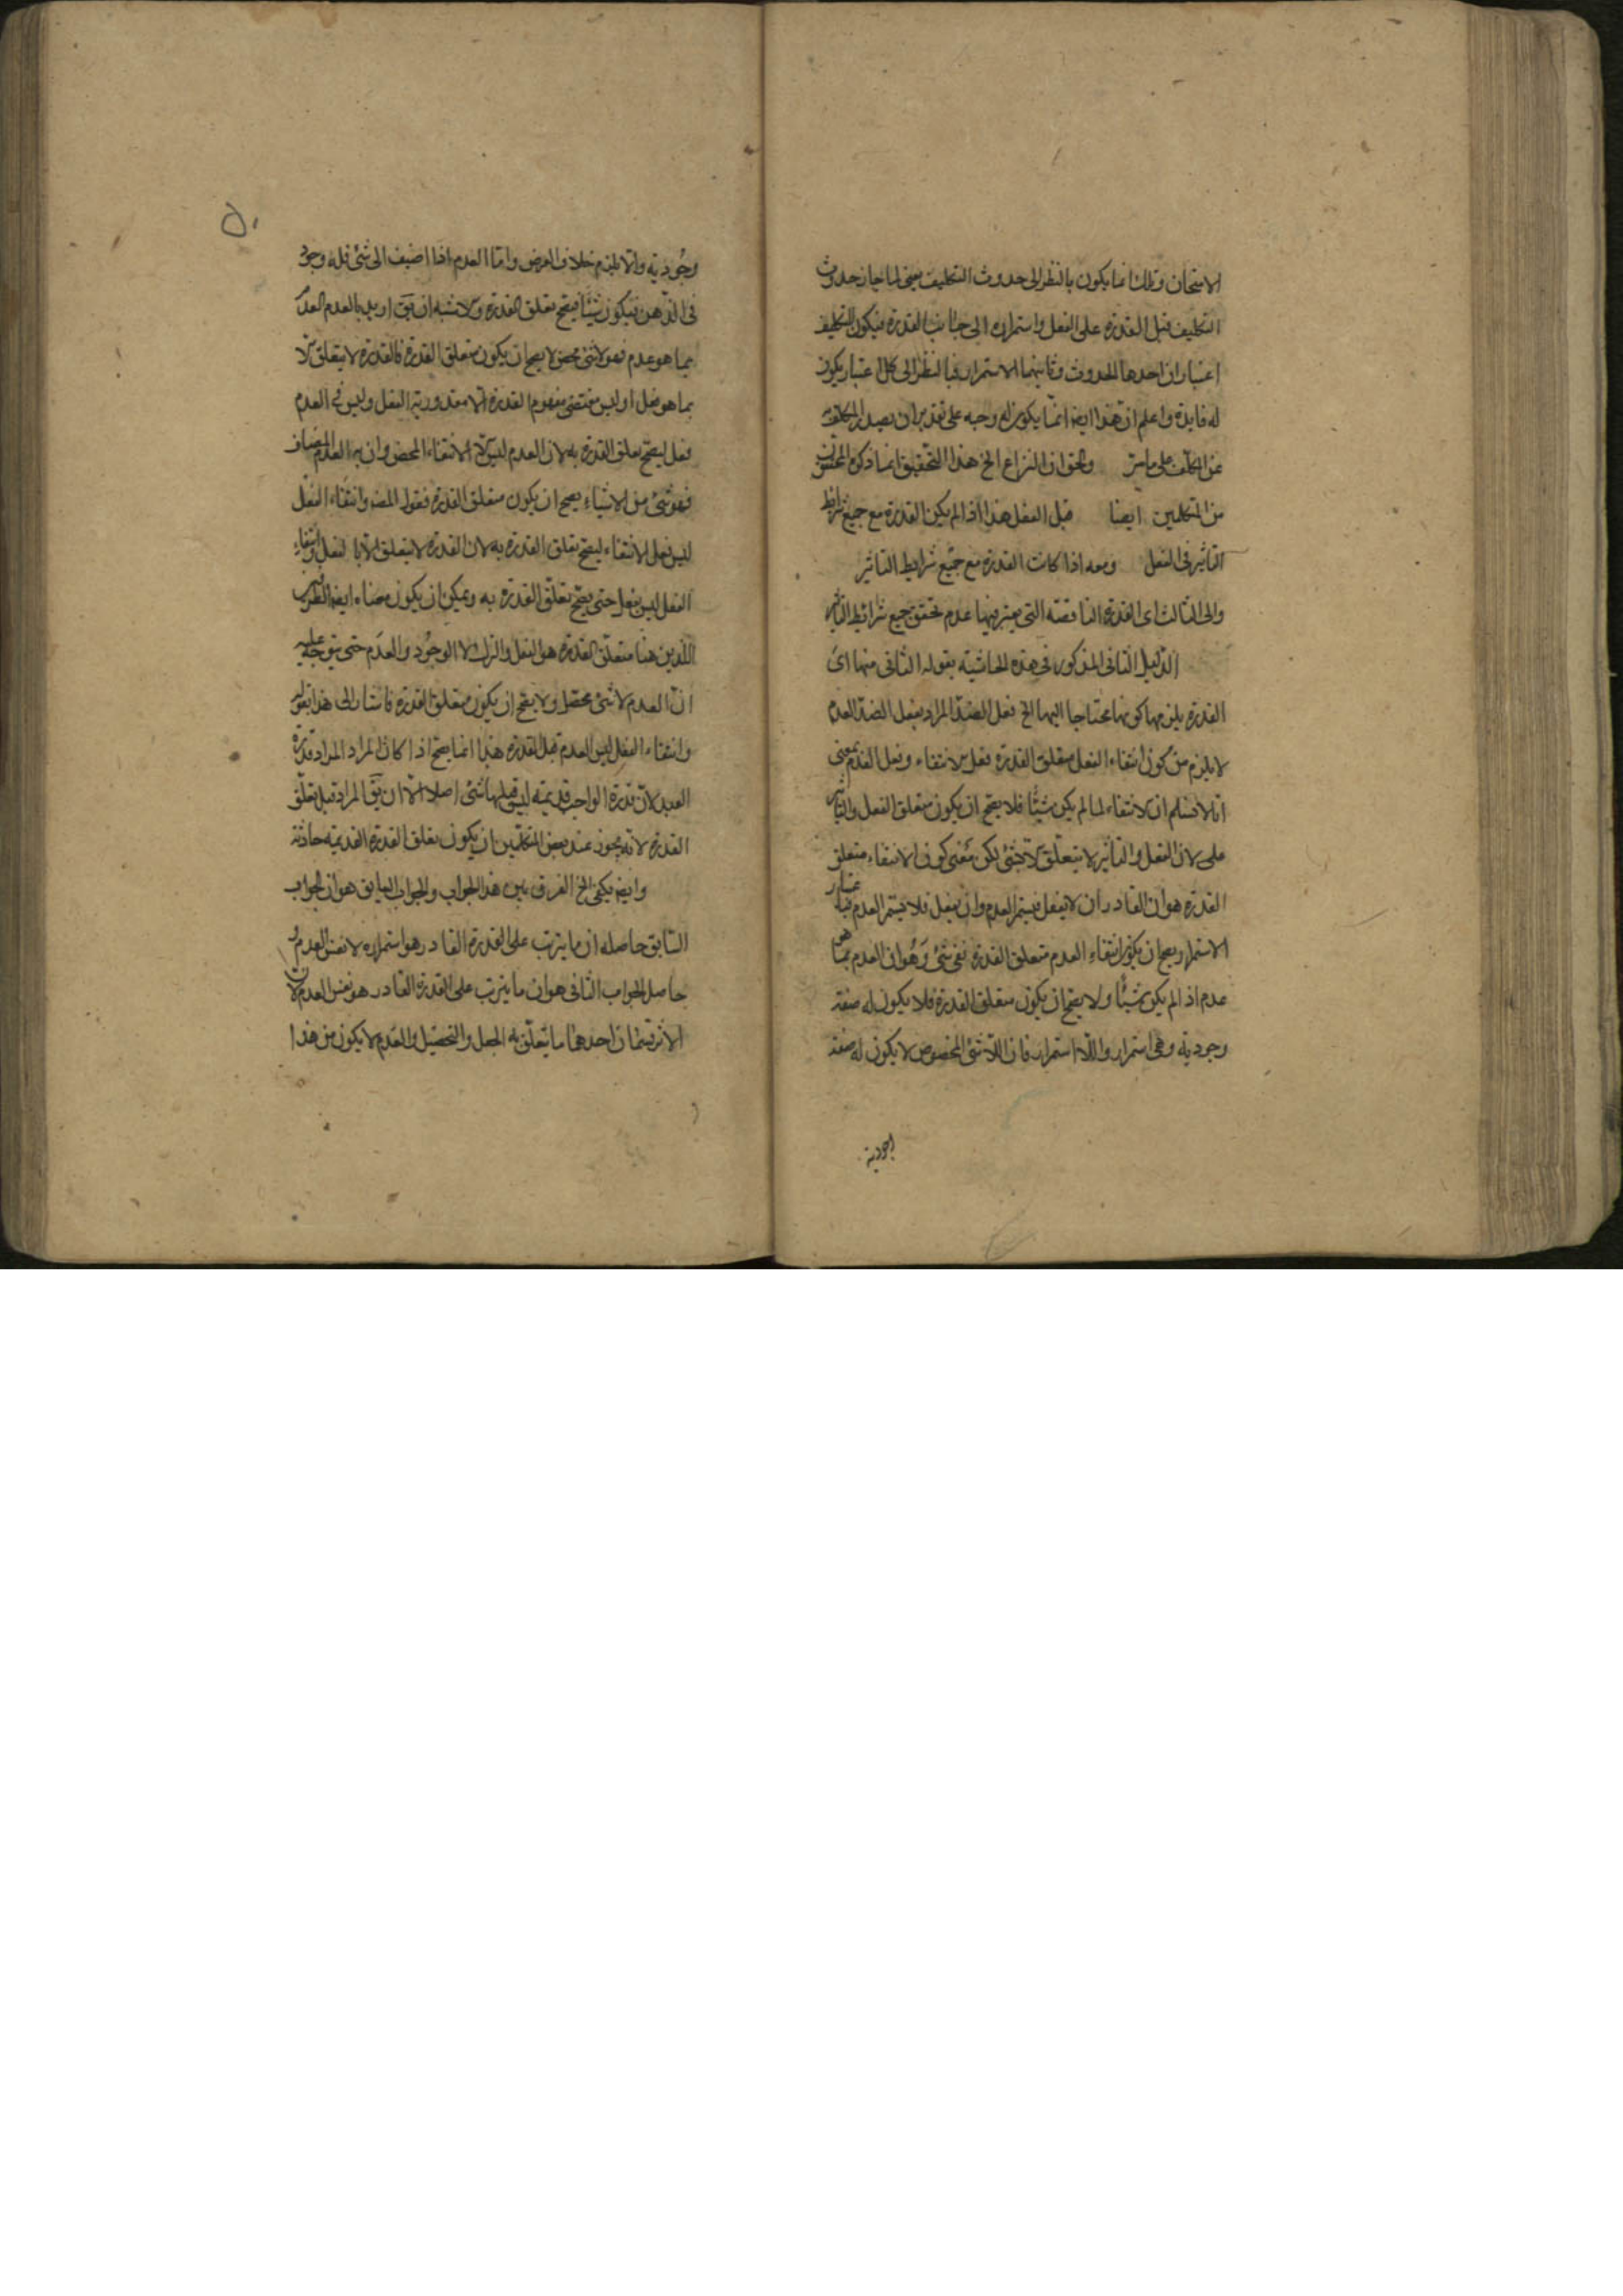 الامتحان وتلك انما يكون بالنظر الى حدوث التكليف يعني لما جاز حدوث
التكليف قبل القدرة على الفعل واستمراره الى جانب القدرة فيكون للتكليف
اعتباران احدها الحدوث وثانيهما الاستمرار فبالنظر الى كل اعتبار يكون
له فايدة واعلم ان هذا ايضا انما يكون له وجبه على تقدير ان يصدر المكلف به
عن المكلف على ما مر والحق ان النزاع الخ هذا التحقيق انما ذكره المحققون
من المتكلمين ايضا قبل الفعل هذا اذا لم يكن القدرة مع جميع شرايط
التأثير في الفعل ومعه اذا كانت القدرة مع جميع شرايط التاثير
والى الثالث اى القدرة الناقصة التي يعتبر فيها عدم تحقق جميع شرائط التاثير
الدليل الثاني المذكور في هذه الحاشية بقوله الثاني منها اى
القدرة يلزمها كونها محتاجا اليها الخ فعل الضد المراد بفعل الضد العدم
لا يلزم من كون انتفاء الفعل متعلق القدرة فعل الانتفاء وفعل العدم بمعنى
انا لا نسلم ان الانتفاء لما لم يكن شيئا فلا يصح ان يكون متعلق الفعل والتاثير
على لان الفعل والتأثير لا يتعلق الا بشئ لكن معنى كون الانتفاء متعلق
القدرة هو ان القادر ان لا يفعل فيستمر العدم وان يفعل فلا يستمر العدم فباعتبار
الاستمرار يصح ان يكون انتفاء العدم متعلق القدرة نفى شئ وهو ان العدم بما هو
عدم اذا لم يكن شيئا ولا يصح ان يكون متعلق القدرة فلا يكون له صفة
وجودية وهي استمرار واللا استمرار فان اللاشئ المخصوص لا يكون له صفة
وجودية
٥٠
وجودية والا يلزم خلاف الفرض واما العدم اذا اضيف الى شئ فله وجود
في الذهن فيكون شيئا فيصح تعلق القدرة ولا شبه ان يق اريد بالعدم العدم
بما هو عدم فهو لا شئ محض لا يصح ان يكون متعلق القدرة فالقدرة لا يتعلق الا
بما هو فعل او ليس مقتضى مفهوم القدرة الا مقدورية الفعل وليس في العدم
فعل ليصح تعلق القدرة به لان العدم ليس الا الانتفاء المحض وان اريد العدم المضاف
فهو شئ من الاشياء يصح ان يكون متعلق القدرة فقول المص وانتفاء الفعل
ليس فعل الانتفاء ليصح تعلق القدرة به لان القدرة لا يتعلق الا بالفعل وانتفاء
الفعل ليس بفعل حتى يصح تعلق القدرة به ويمكن ان يكون معناه ايضا الطرفين
اللذين هنا متعلق القدرة هو الفعل والترك لا الوجود والعدم حتى يتوجه عليه
ان العدم لا شئ محصل ولا يصح ان يكون متعلق القدرة فاشار الى هذا بقوله
وانتفاء الفعل ليس العدم قبل القدرة هذا انما يصح اذا كان المراد المراد قدرة
العبد لان قدرة الواجب قديمة ليق قبلها شئ اصلا الا ان يق المراد قبل تعلق
القدرة لانه يجوز عند بعض المتكلمين ان يكون تعلق القدرة القديمة حادثة
وايضا يكفي الخ الفرق بين هذا الجواب والجواب السابق هو ان الجواب
السابق حاصله ان ما يترتب على القدرة القادر هو استمراره لا نفس العدم و
حاصل الجواب الثاني هو ان ما يترتب على القدرة القادر هو نفس العدم لان
الاثر قسمان احدهما ما يتعلق به الجعل والتحصيل والعدم لا يكون من هذا